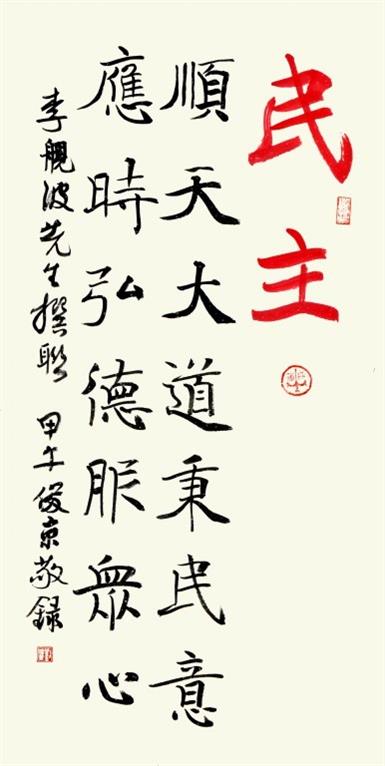 民主
順天大道秉民意
應時弘德服眾心
李靚波先生撰聯 甲午俊京敬録